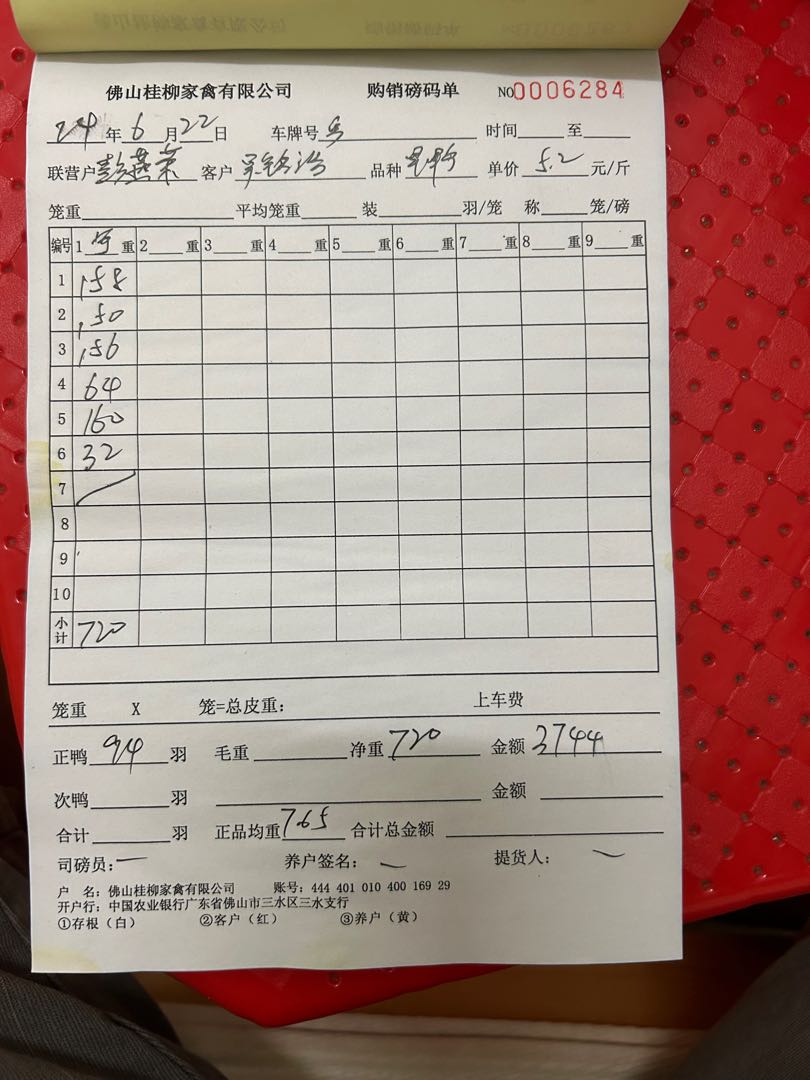 佛山桂柳家禽有限公司 购销磅码单 NO0006284
24年6月22日 车牌号 时间 至
联营户彭燕荣 客户 品种 单价5.2元/斤
笼重 平均笼重 装 羽/笼 称 笼/磅
编号 1 重 2 重 3 重 4 重 5 重 6 重 7 重 8 重 9 重
1 158
2 150
3 156
4 64
5 160
6 32
7
8
9
10
小计 720
笼重 X 笼=总皮重: 上车费
正鸭94羽 毛重 净重720 金额3744
次鸭 羽 金额
合计 羽 正品均重7.65 合计总金额
司磅员: 养户签名: 提货人:
户 名: 佛山桂柳家禽有限公司 账号: 444 401 010 400 169 29
开户行: 中国农业银行广东省佛山市三水区三水支行
①存根(白) ②客户(红) ③养户(黄)